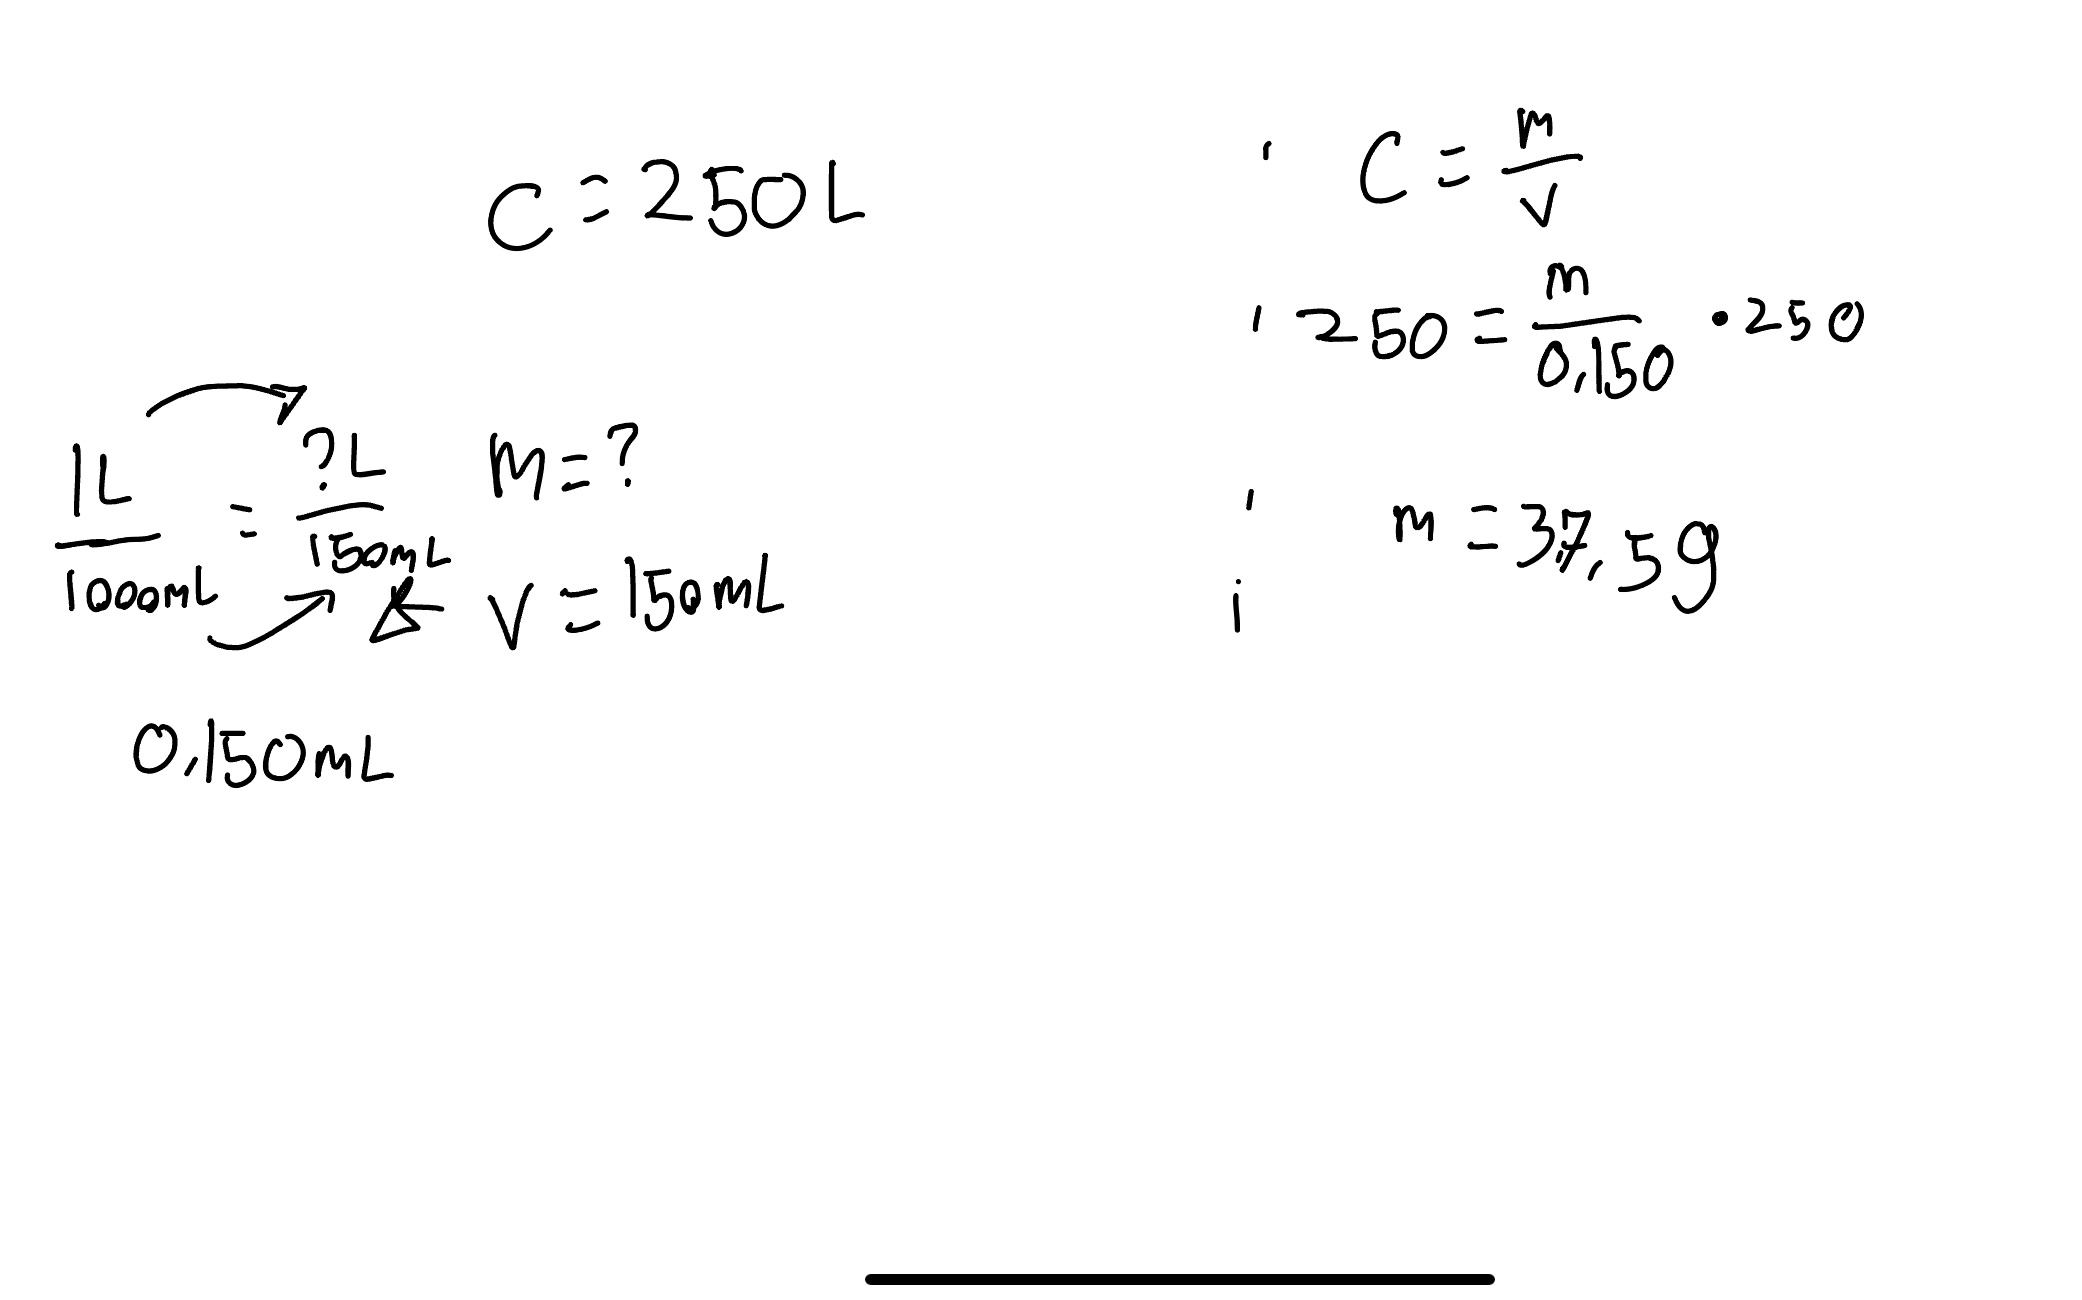 C = 250 L
1L/1000mL = ?L/150mL
m = ?
V = 150 mL
0,150 mL
C = m/V
250 = m/0,150 • 250
m = 37,5g